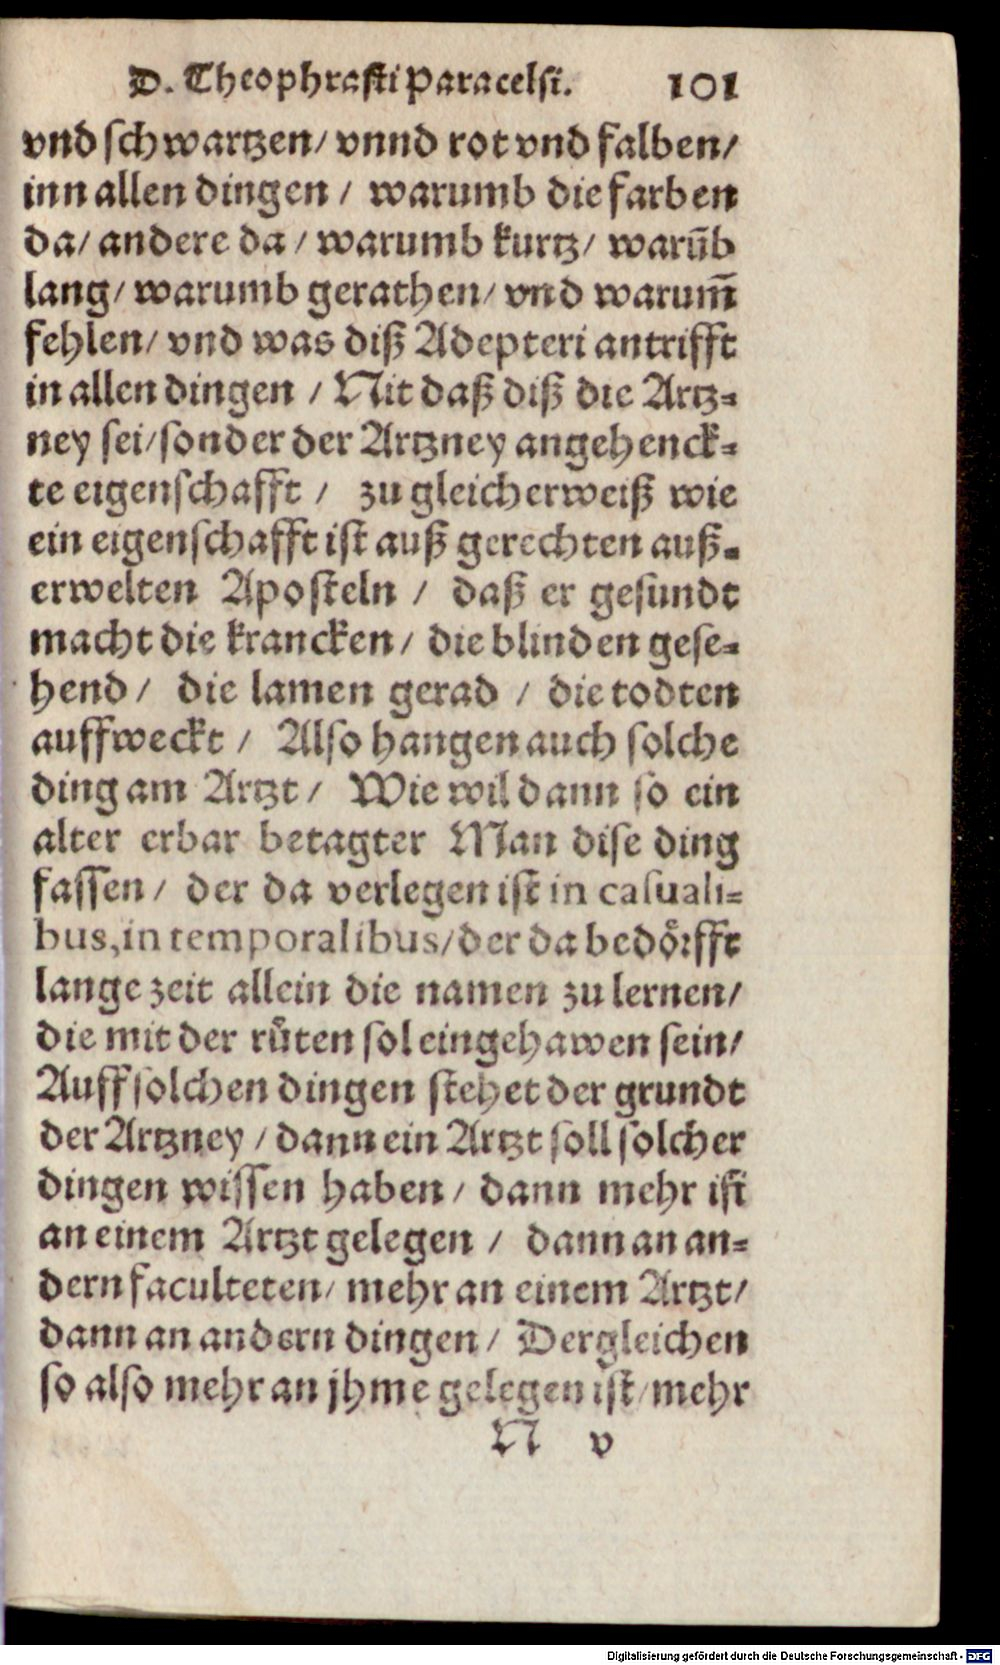 D. Theophrasti Paracelsi. 101
vnd schwartzen/ vnnd rot vnd falben/
inn allen dingen / warumb die farben
da/ andere da / warumb kurtz/ warūb
lang/ warumb gerathen/ vnd warum̄
fehlen/ vnd was diß Adepteri antrifft
in allen dingen / Nit daß diß die Artz-
ney sei/ sonder der Artzney angehenck-
te eigenschafft / zu gleicherweiß wie
ein eigenschafft ist auß gerechten auß-
erwelten Aposteln / daß er gesundt
macht die krancken/ die blinden gese-
hend / die lamen gerad / die todten
auffweckt / Also hangen auch solche
ding am Artzt / Wie wil dann so ein
alter erbar betagter Man dise ding
fassen / der da verlegen ist in casuali-
bus, in temporalibus/ der da bedoͤrfft
lange zeit allein die namen zu lernen/
die mit der růten sol eingehawen sein/
Auff solchen dingen stehet der grundt
der Artzney / dann ein Artzt soll solcher
dingen wissen haben / dann mehr ist
an einem Artzt gelegen / dann an an-
dern faculteten/ mehr an einem Artzt/
dann an andern dingen / Dergleichen
so also mehr an jhme gelegen ist/ mehr
N v
Digitalisierung gefördert durch die Deutsche Forschungsgemeinschaft - DFG